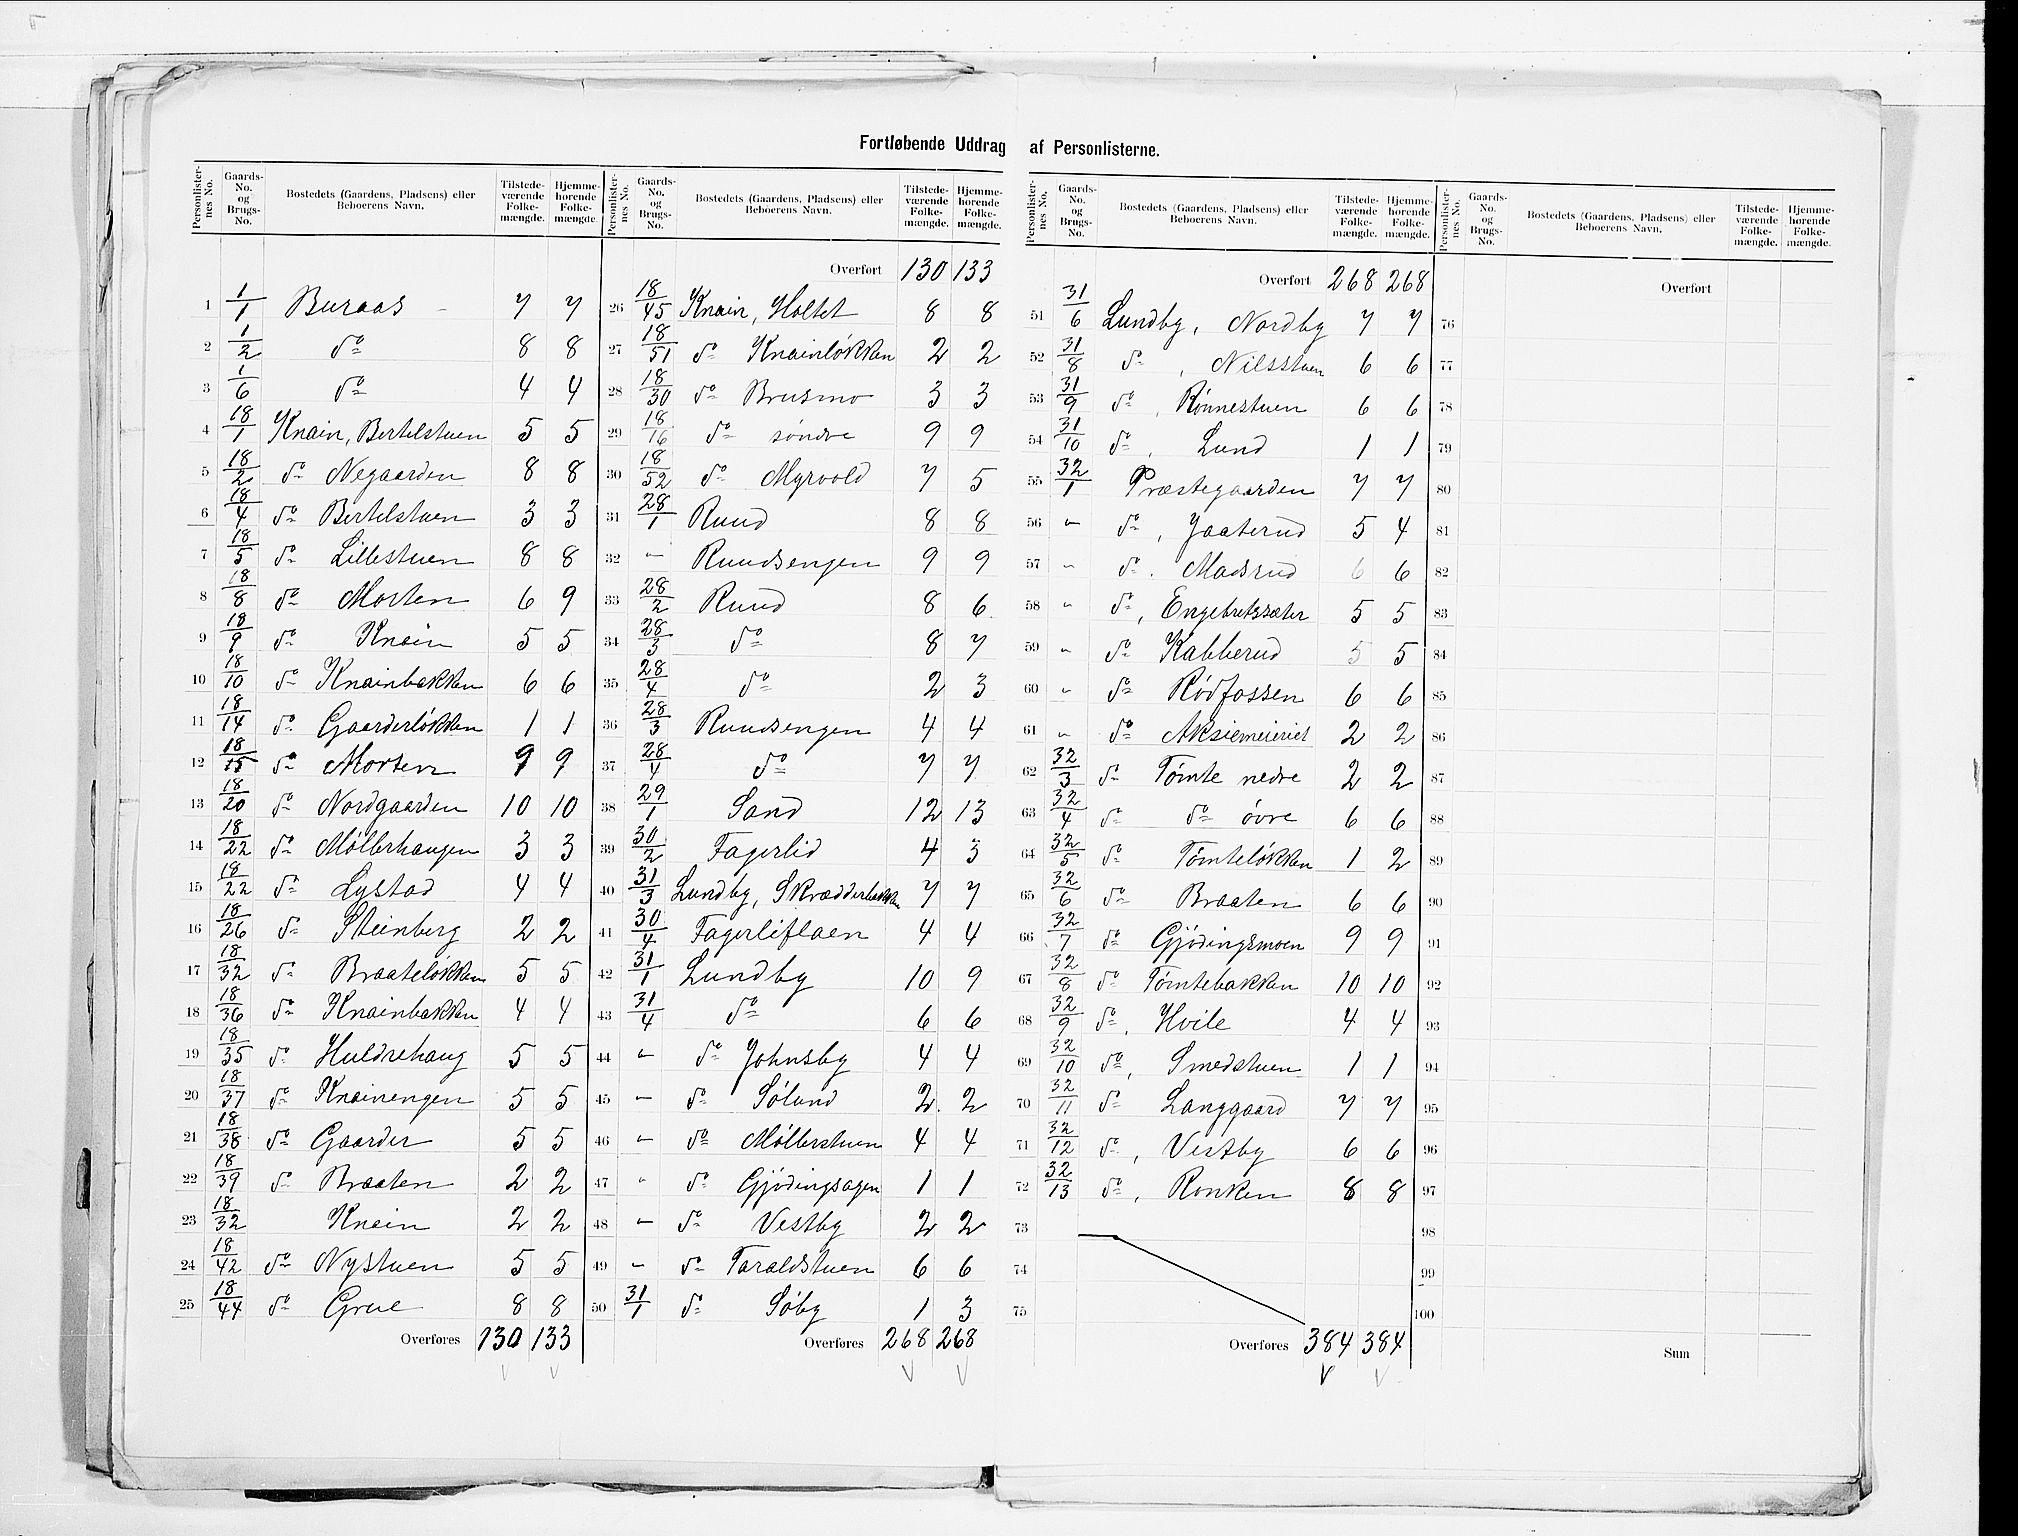 Fortløbende Uddrag af Personlisterne.
Personlister- nes No. | Gaards- No. og Brugs- No. | Bostedets (Gaardens, Pladsens) eller Beboerens Navn. | Tilstede- værende Folke- mængde. | Hjemme- hørende Folke- mængde.
1 1/1 Buraas - 7 7
2 1/2 do 8 8
3 1/6 do 4 4
4 18/1 Knain, Bertelstuen 5 5
5 18/2 do Negaarden 8 8
6 18/4 do Bertelstuen 3 3
7 18/5 do Lillestuen 8 8
8 18/8 do Morten 6 9
9 18/9 do Knain 5 5
10 18/10 do Knainbakken 6 6
11 18/14 do Gaarderløkken 1 1
12 18/15 do Morten 9 9
13 18/20 do Nordgaarden 10 10
14 18/22 do Møllerhaugen 3 3
15 18/22 do Lystad 4 4
16 18/26 do Steinberg 2 2
17 18/32 do Braateløkken 5 5
18 18/36 do Knainbakken 4 4
19 18/35 do Huldrehaug 5 5
20 18/37 do Knainengen 5 5
21 18/38 do Gaarder 5 5
22 18/39 do Braaten 2 2
23 18/32 Knain 2 2
24 18/42 do Nystuen 5 5
25 18/44 do Grue 8 8
Overføres 130 133
Personlister- nes No. | Gaards- No. og Brugs- No. | Bostedets (Gaardens, Pladsens) eller Beboerens Navn. | Tilstede- værende Folke- mængde. | Hjemme- hørende Folke- mængde.
Overført 130 133
26 18/45 Knain, Holtet 8 8
27 18/51 do Knainløkken 2 2
28 18/30 do Brusmo 3 3
29 18/16 do søndre 9 9
30 18/52 do Myrvold 7 5
31 28/1 Ruud 8 8
32 " Ruudsengen 9 9
33 28/2 Ruud 8 6
34 28/3 do 8 7
35 28/4 do 2 3
36 28/3 Ruudsengen 4 4
37 28/4 do 7 7
38 29/1 Sand 12 13
39 30/2 Fagerlid 4 3
40 31/3 Lundby, Skrædderbakken 7 7
41 30/4 Fagerliflaen 4 4
42 31/1 Lundby 10 9
43 31/4 do 6 6
44 " do Johnsby 4 4
45 " do Sølund 2 2
46 " do Møllerstuen 4 4
47 " do Gjødingsagen 1 1
48 " do Vestby 2 2
49 " do Taraldstuen 6 6
50 31/1 do Søby 1 3
Overføres 268 268
Personlister- nes No. | Gaards- No. og Brugs- No. | Bostedets (Gaardens, Pladsens) eller Beboerens Navn. | Tilstede- værende Folke- mængde. | Hjemme- hørende Folke- mængde.
Overført 268 268
51 31/6 Lundby, Nordby 7 7
52 31/8 do, Nilsstuen 6 6
53 31/9 do, Rønnestuen 6 6
54 31/10 do, Lund 1 1
55 32/1 Præstegaarden 7 7
56 " do, Jaaterud 5 4
57 " do. Madsrud 6 6
58 " do, Engebretssæter 5 5
59 " do Kabberud 5 5
60 " do Rødfossen 6 6
61 " do Aksiemeieriet 2 2
62 32/3 do Tømte nedre 2 2
63 32/4 do do øvre 6 6
64 32/5 do Tømteløkken 1 2
65 32/6 do Braaten 6 6
66 32/7 do Gjødingsmoen 9 9
67 32/8 do Tømtebakken 10 10
68 32/9 do, Hvile 4 4
69 32/10 do, Smedstuen 1 1
70 32/11 do Langgaard 7 7
71 32/12 do, Vestby 6 6
72 32/13 do, Ronken 8 8
73
74
75
Overføres 384 384
Personlister- nes No. | Gaards- No. og Brugs- No. | Bostedets (Gaardens, Pladsens) eller Beboerens Navn. | Tilstede- værende Folke- mængde. | Hjemme- hørende Folke- mængde.
Overført
76
77
78
79
80
81
82
83
84
85
86
87
88
89
90
91
92
93
94
95
96
97
98
99
100
Sum